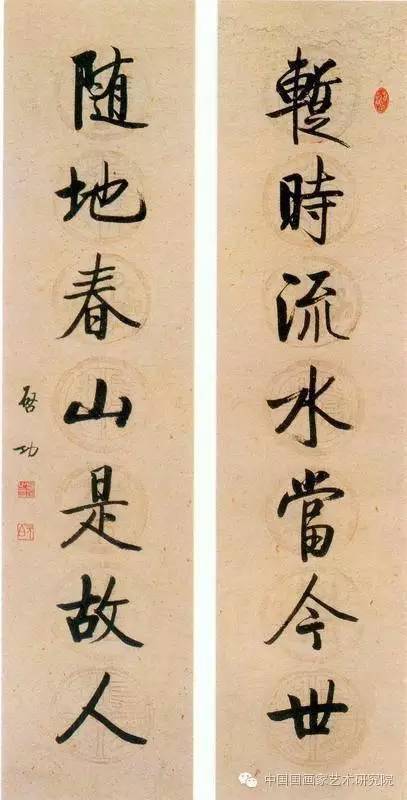 暫時流水當今世
随地春山是故人
啓功
中国国画家艺术研究院